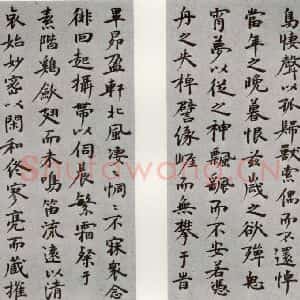 鳥悽聲以孤歸獸索偶而不還悼
當年之晚暮恨茲歲之欲殫思
宵夢以從之神飄飄而不安若憑
舟之失棹譬緣崖而無攀于時
畢昴盈軒北風淒惘々不寐衆念
徘徊起攝帶以伺晨繁霜粲于
素階鷄歛翅而未鳴笛流遠以清
哀始妙密以閑和終寥亮而藏摧
Shufawang.CN